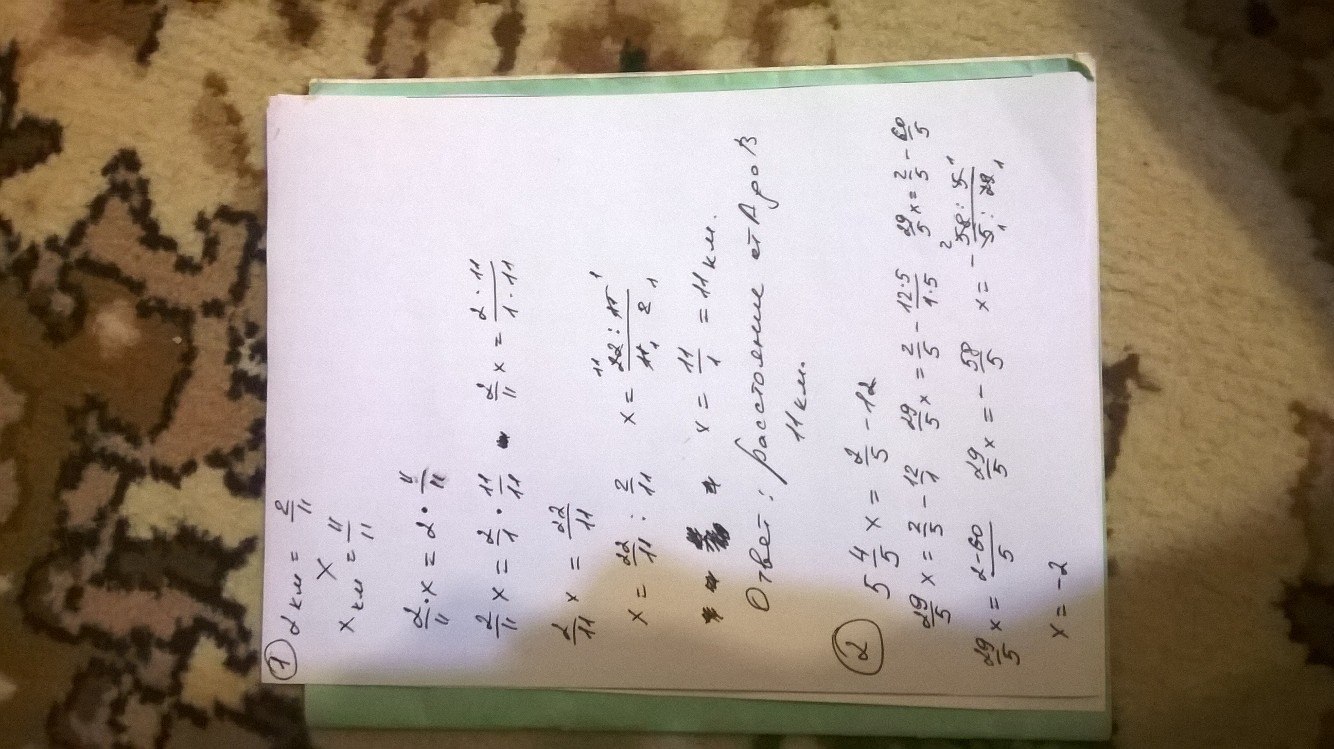 ① 2 км = 2/11
X
X км = 11/11
2/11 · x = 2 · 11/11
2/11 x = 2/1 · 11/11 2/11 x = 2 · 11/1 · 11
2/11 x = 22/11
x = 22/11 : 2/11 x = 22 : 11/11 2 11 1 1 1
x = 11/1 = 11 км.
Ответ: расстояние от А до В
11 км.
② 5 4/5 x = 2/5 - 12
29/5 x = 2/5 - 12/1 29/5 x = 2/5 - 12·5/1·5 29/5 x = 2/5 - 60/5
29/5 x = 2-60/5 29/5 x = - 58/5 x = - 58 : 5/5 : 29 2 1 1 1
x = -2